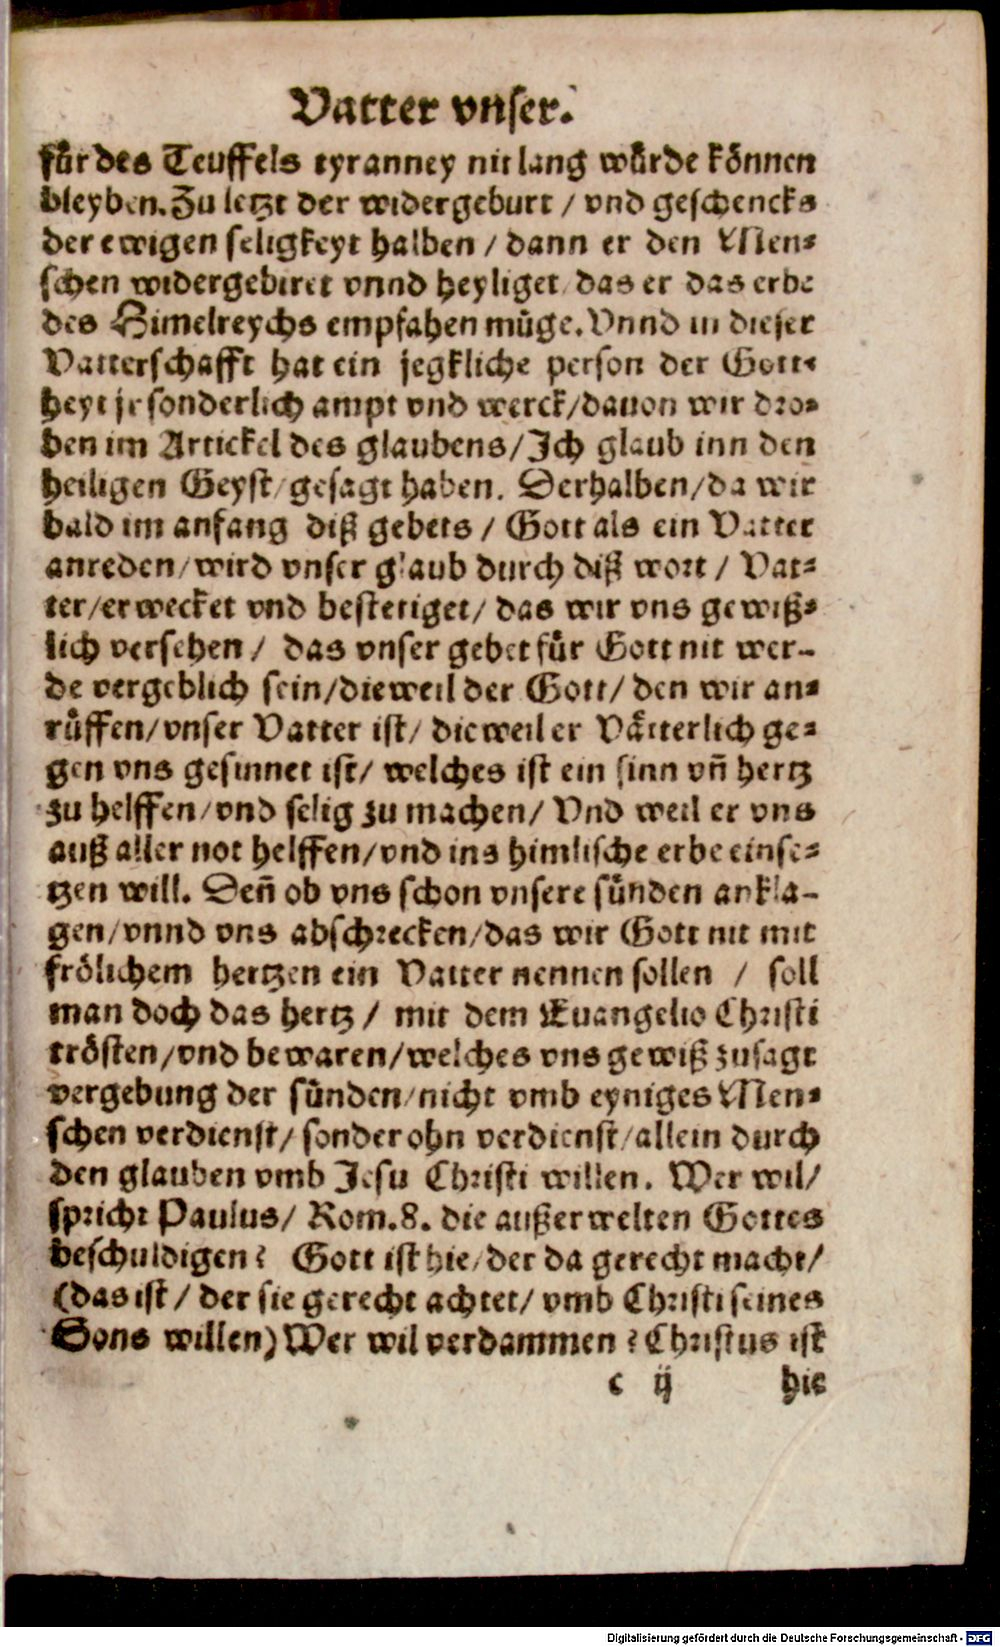 Vatter vnser.
fuͤr des Teuffels tyranney nit lang wuͤrde koͤnnen
bleyben. Zu letzt der widergeburt / vnd geschencks
der ewigen seligkeyt halben / dann er den Men⸗
schen widergebiret vnnd heyliget / das er das erbe
des Himelreychs empfahen muͤge. Vnnd in dieser
Vatterschafft hat ein jegkliche person der Gott⸗
heyt jr sonderlich ampt vnd werck / dauon wir dro⸗
ben im Artickel des glaubens / Ich glaub inn den
heiligen Geyst / gesagt haben. Derhalben / da wir
bald im anfang diß gebets / Gott als ein Vatter
anreden / wird vnser glaub durch diß wort / Vat⸗
ter / erwecket vnd bestetiget / das wir vns gewiß⸗
lich versehen / das vnser gebet fuͤr Gott nit wer-
de vergeblich sein / dieweil der Gott / den wir an⸗
ruͤffen / vnser Vatter ist / dieweil er Vaͤtterlich ge⸗
gen vns gesinnet ist / welches ist ein sinn vñ hertz
zu helffen / vnd selig zu machen / Vnd weil er vns
auß aller not helffen / vnd ins himlische erbe einse⸗
tzen will. Deñ ob vns schon vnsere suͤnden ankla-
gen / vnnd vns abschrecken / das wir Gott nit mit
froͤlichem hertzen ein Vatter nennen sollen / soll
man doch das hertz / mit dem Euangelio Christi
troͤsten / vnd bewaren / welches vns gewiß zusagt
vergebung der suͤnden / nicht vmb eyniges Men⸗
schen verdienst / sonder ohn verdienst / allein durch
den glauben vmb Jesu Christi willen. Wer wil /
spricht Paulus / Rom. 8. die außerwelten Gottes
beschuldigen? Gott ist hie / der da gerecht macht /
(das ist / der sie gerecht achtet / vmb Christi seines
Sons willen) Wer wil verdammen? Christus ist
c ij hie
Digitalisierung gefördert durch die Deutsche Forschungsgemeinschaft - DFG